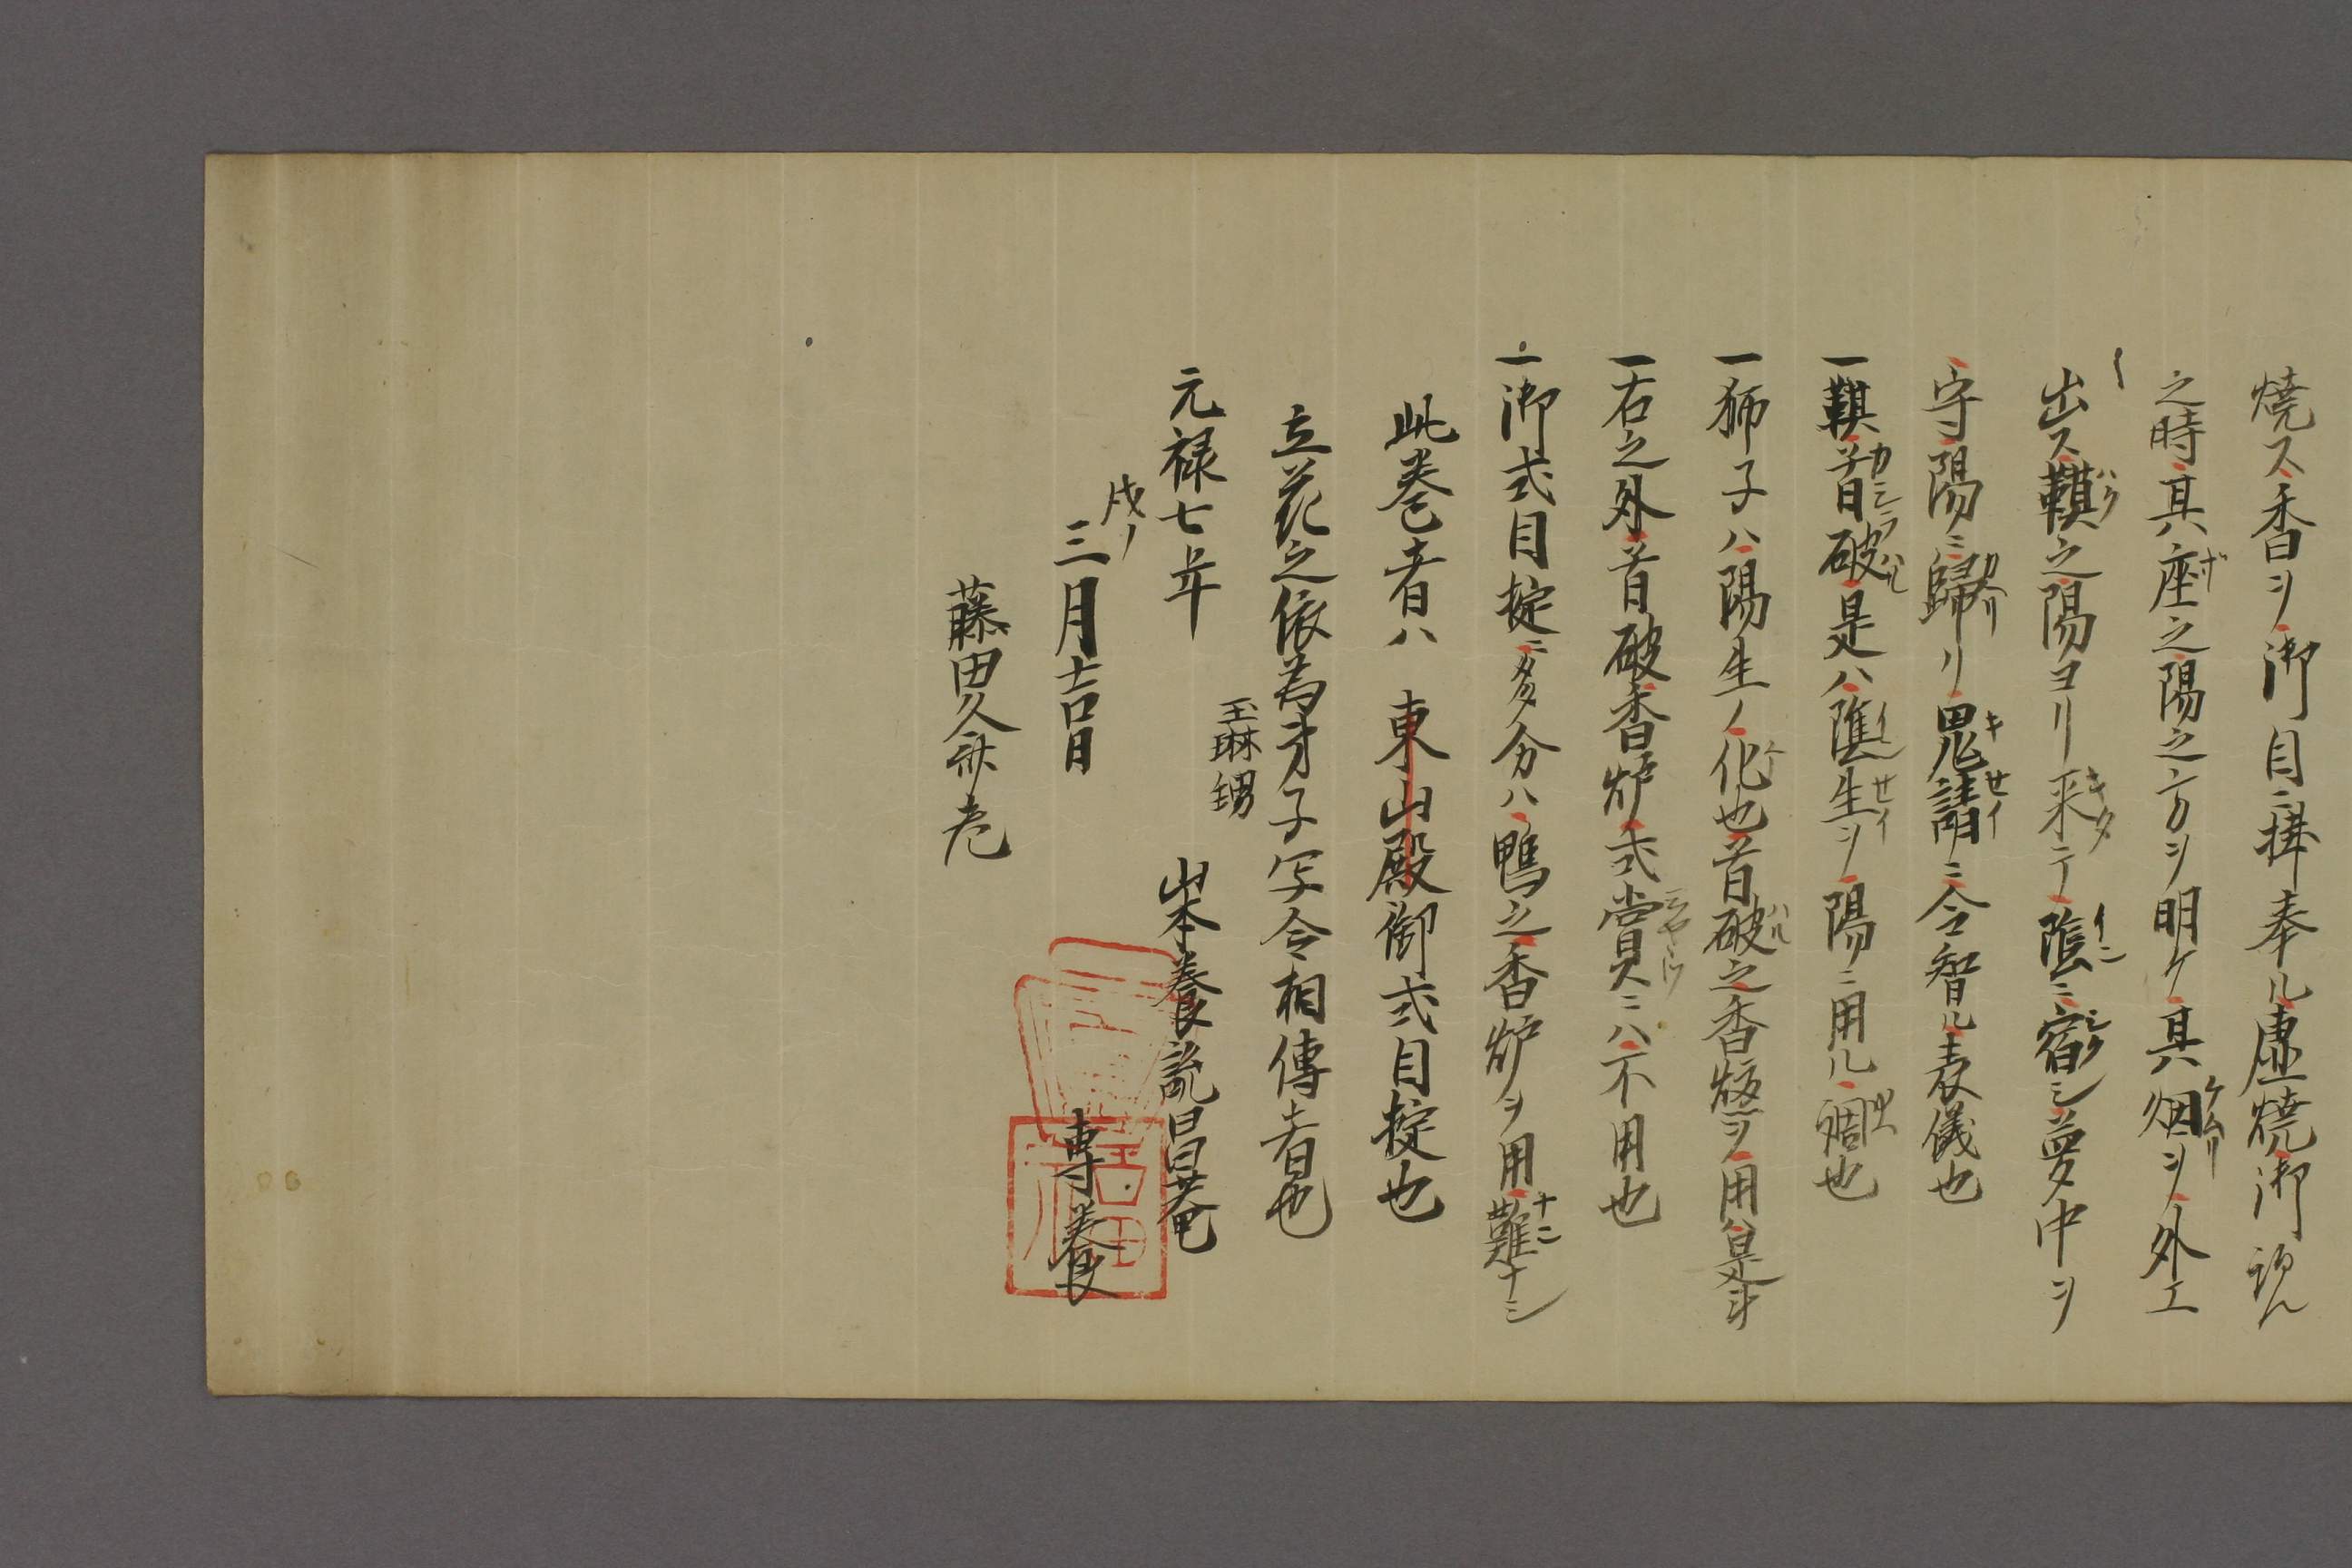 燒ス香ヲ御目ニ掛奉ル虚燒御
之時其座之陽之方ヲ明ケ其烟ヲ外エ
出ス䩞之陽ヨリ来テ陰ニ宿シ夢中ヲ
守陽ニ歸リ鬼請ニ令智ル表儀也
一䩞首破是ハ陰生ヲ陽ニ用ル調也
一獅子ハ陽生ノ化也首破之香炉ヲ用
一右之外首破香炉弐賞ニハ不用也
一御式目掟ニ多分ハ鴨之香炉ヲ用難ナシ
此巻者ハ 東山殿御式目掟也
立花之依為才子写令相傳者也
元禄七年
戌ノ
三月吉日
玉琳甥
山本養説昌菴
専養
藤田久 老